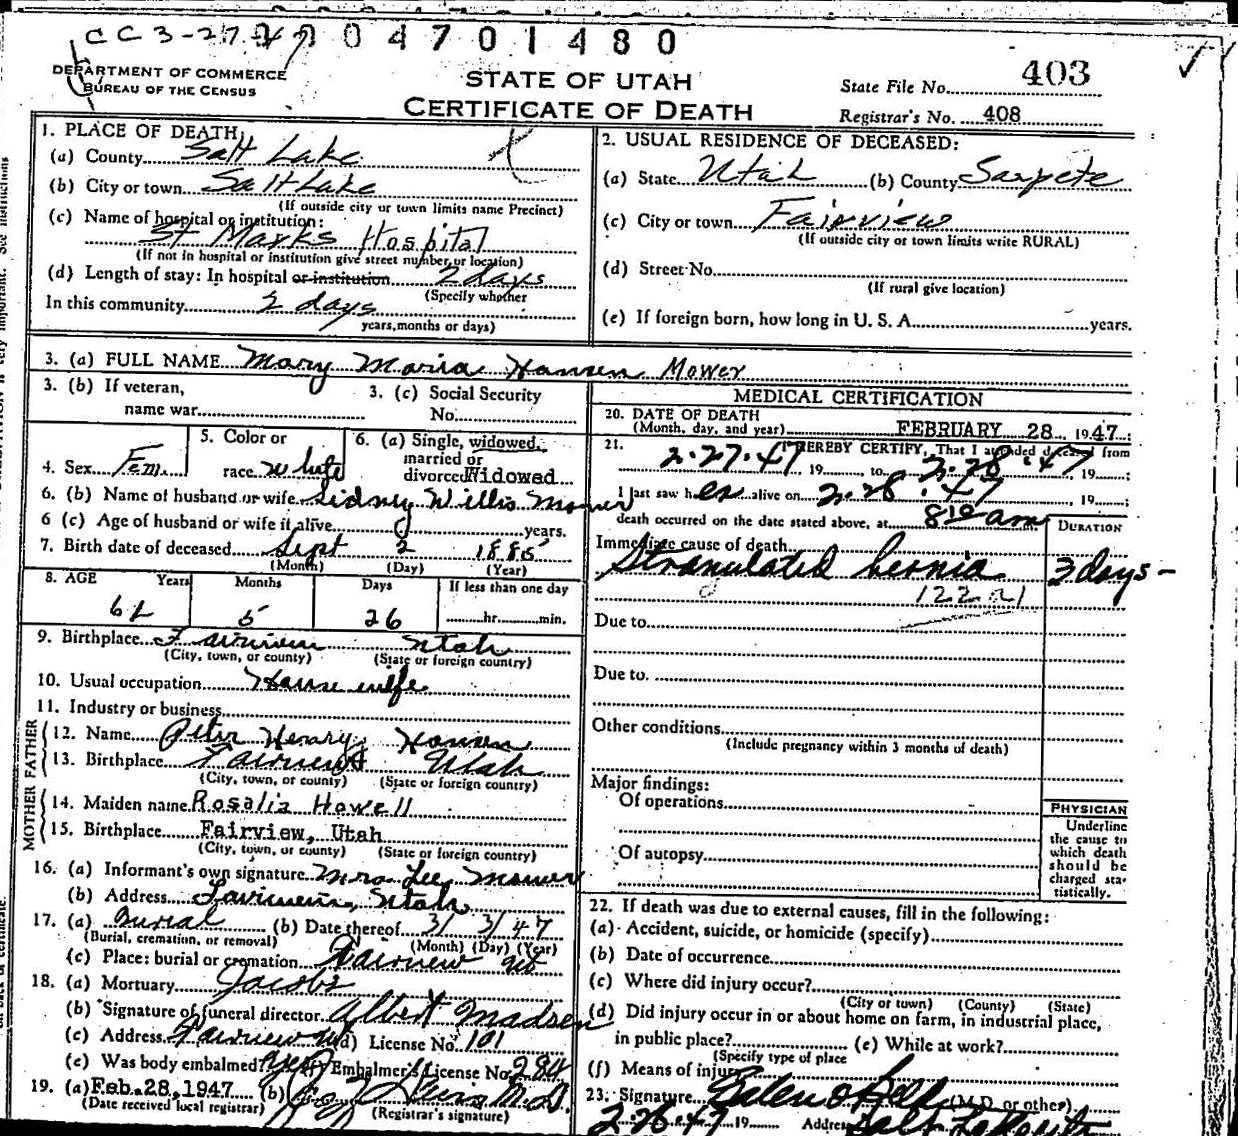 CC 3-27-47
004701480
DEPARTMENT OF COMMERCE
BUREAU OF THE CENSUS
STATE OF UTAH
CERTIFICATE OF DEATH
State File No. 403
Registrar's No. 408
1. PLACE OF DEATH:
(a) County Salt Lake
(b) City or town Salt Lake
(If outside city or town limits name Precinct)
(c) Name of hospital or institution:
St Marks Hospital
(If not in hospital or institution give street number or location)
(d) Length of stay: In hospital or institution 2 days
(Specify whether
In this community 2 days
years, months or days)
2. USUAL RESIDENCE OF DECEASED:
(a) State Utah (b) County Sanpete
(c) City or town Fairview
(If outside city or town limits write RURAL)
(d) Street No.
(If rural give location)
(e) If foreign born, how long in U. S. A. years.
3. (a) FULL NAME Mary Maria Hansen Mower
3. (b) If veteran,
name war
3. (c) Social Security
No.
4. Sex Fem.
5. Color or
race White
6. (a) Single, widowed,
married or
divorced Widowed
6. (b) Name of husband or wife Sidney Willis Mower
6 (c) Age of husband or wife if alive years.
7. Birth date of deceased Sept 2 1885
(Month) (Day) (Year)
8. AGE Years Months Days If less than one day
61 5 26 hr. min.
9. Birthplace Fairview Utah
(City, town, or county) (State or foreign country)
10. Usual occupation Housewife
11. Industry or business
FATHER
12. Name Peter Henry Hansen
13. Birthplace Fairview Utah
(City, town, or county) (State or foreign country)
MOTHER
14. Maiden name Rosalia Howell
15. Birthplace Fairview, Utah
(City, town, or county) (State or foreign country)
16. (a) Informant's own signature Mrs. Lee Mower
(b) Address Fairview, Utah
17. (a) Burial (b) Date thereof 3/ 3/ 47
(Burial, cremation, or removal) (Month) (Day) (Year)
(c) Place: burial or cremation Fairview Ut
18. (a) Mortuary Jacobs
(b) Signature of funeral director Albert Madsen
(c) Address Fairview Ut (d) License No. 101
(e) Was body embalmed? yes (f) Embalmer's License No. 284
19. (a) Feb. 28, 1947 (b) M. D.
(Date received local registrar) (Registrar's signature)
MEDICAL CERTIFICATION
20. DATE OF DEATH
(Month, day, and year) FEBRUARY 28 1947;
21. I HEREBY CERTIFY, That I attended deceased from
2-27-47, 19 to 2-28-47, 19 ;
I last saw her alive on 2-28-47 19 ;
death occurred on the date stated above, at 8 10 am
DURATION
Immediate cause of death
Strangulated hernia 3 days -
122 a1
Due to
Due to.
Other conditions
(Include pregnancy within 3 months of death)
Major findings:
Of operations
Of autopsy
PHYSICIAN
Underline
the cause to
which death
should be
charged sta-
tistically.
22. If death was due to external causes, fill in the following:
(a) Accident, suicide, or homicide (specify)
(b) Date of occurrence
(c) Where did injury occur?
(City or town) (County) (State)
(d) Did injury occur in or about home on farm, in industrial place,
in public place? (e) While at work?
(Specify type of place
(f) Means of injury
23. Signature (M.D. or other)
2-28-47 19 Address Salt Lake City